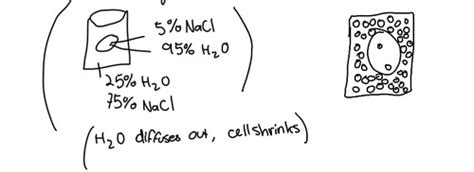 5% NaCl
95% H₂O
25% H₂O
75% NaCl
(H₂O diffuses out, cell shrinks)